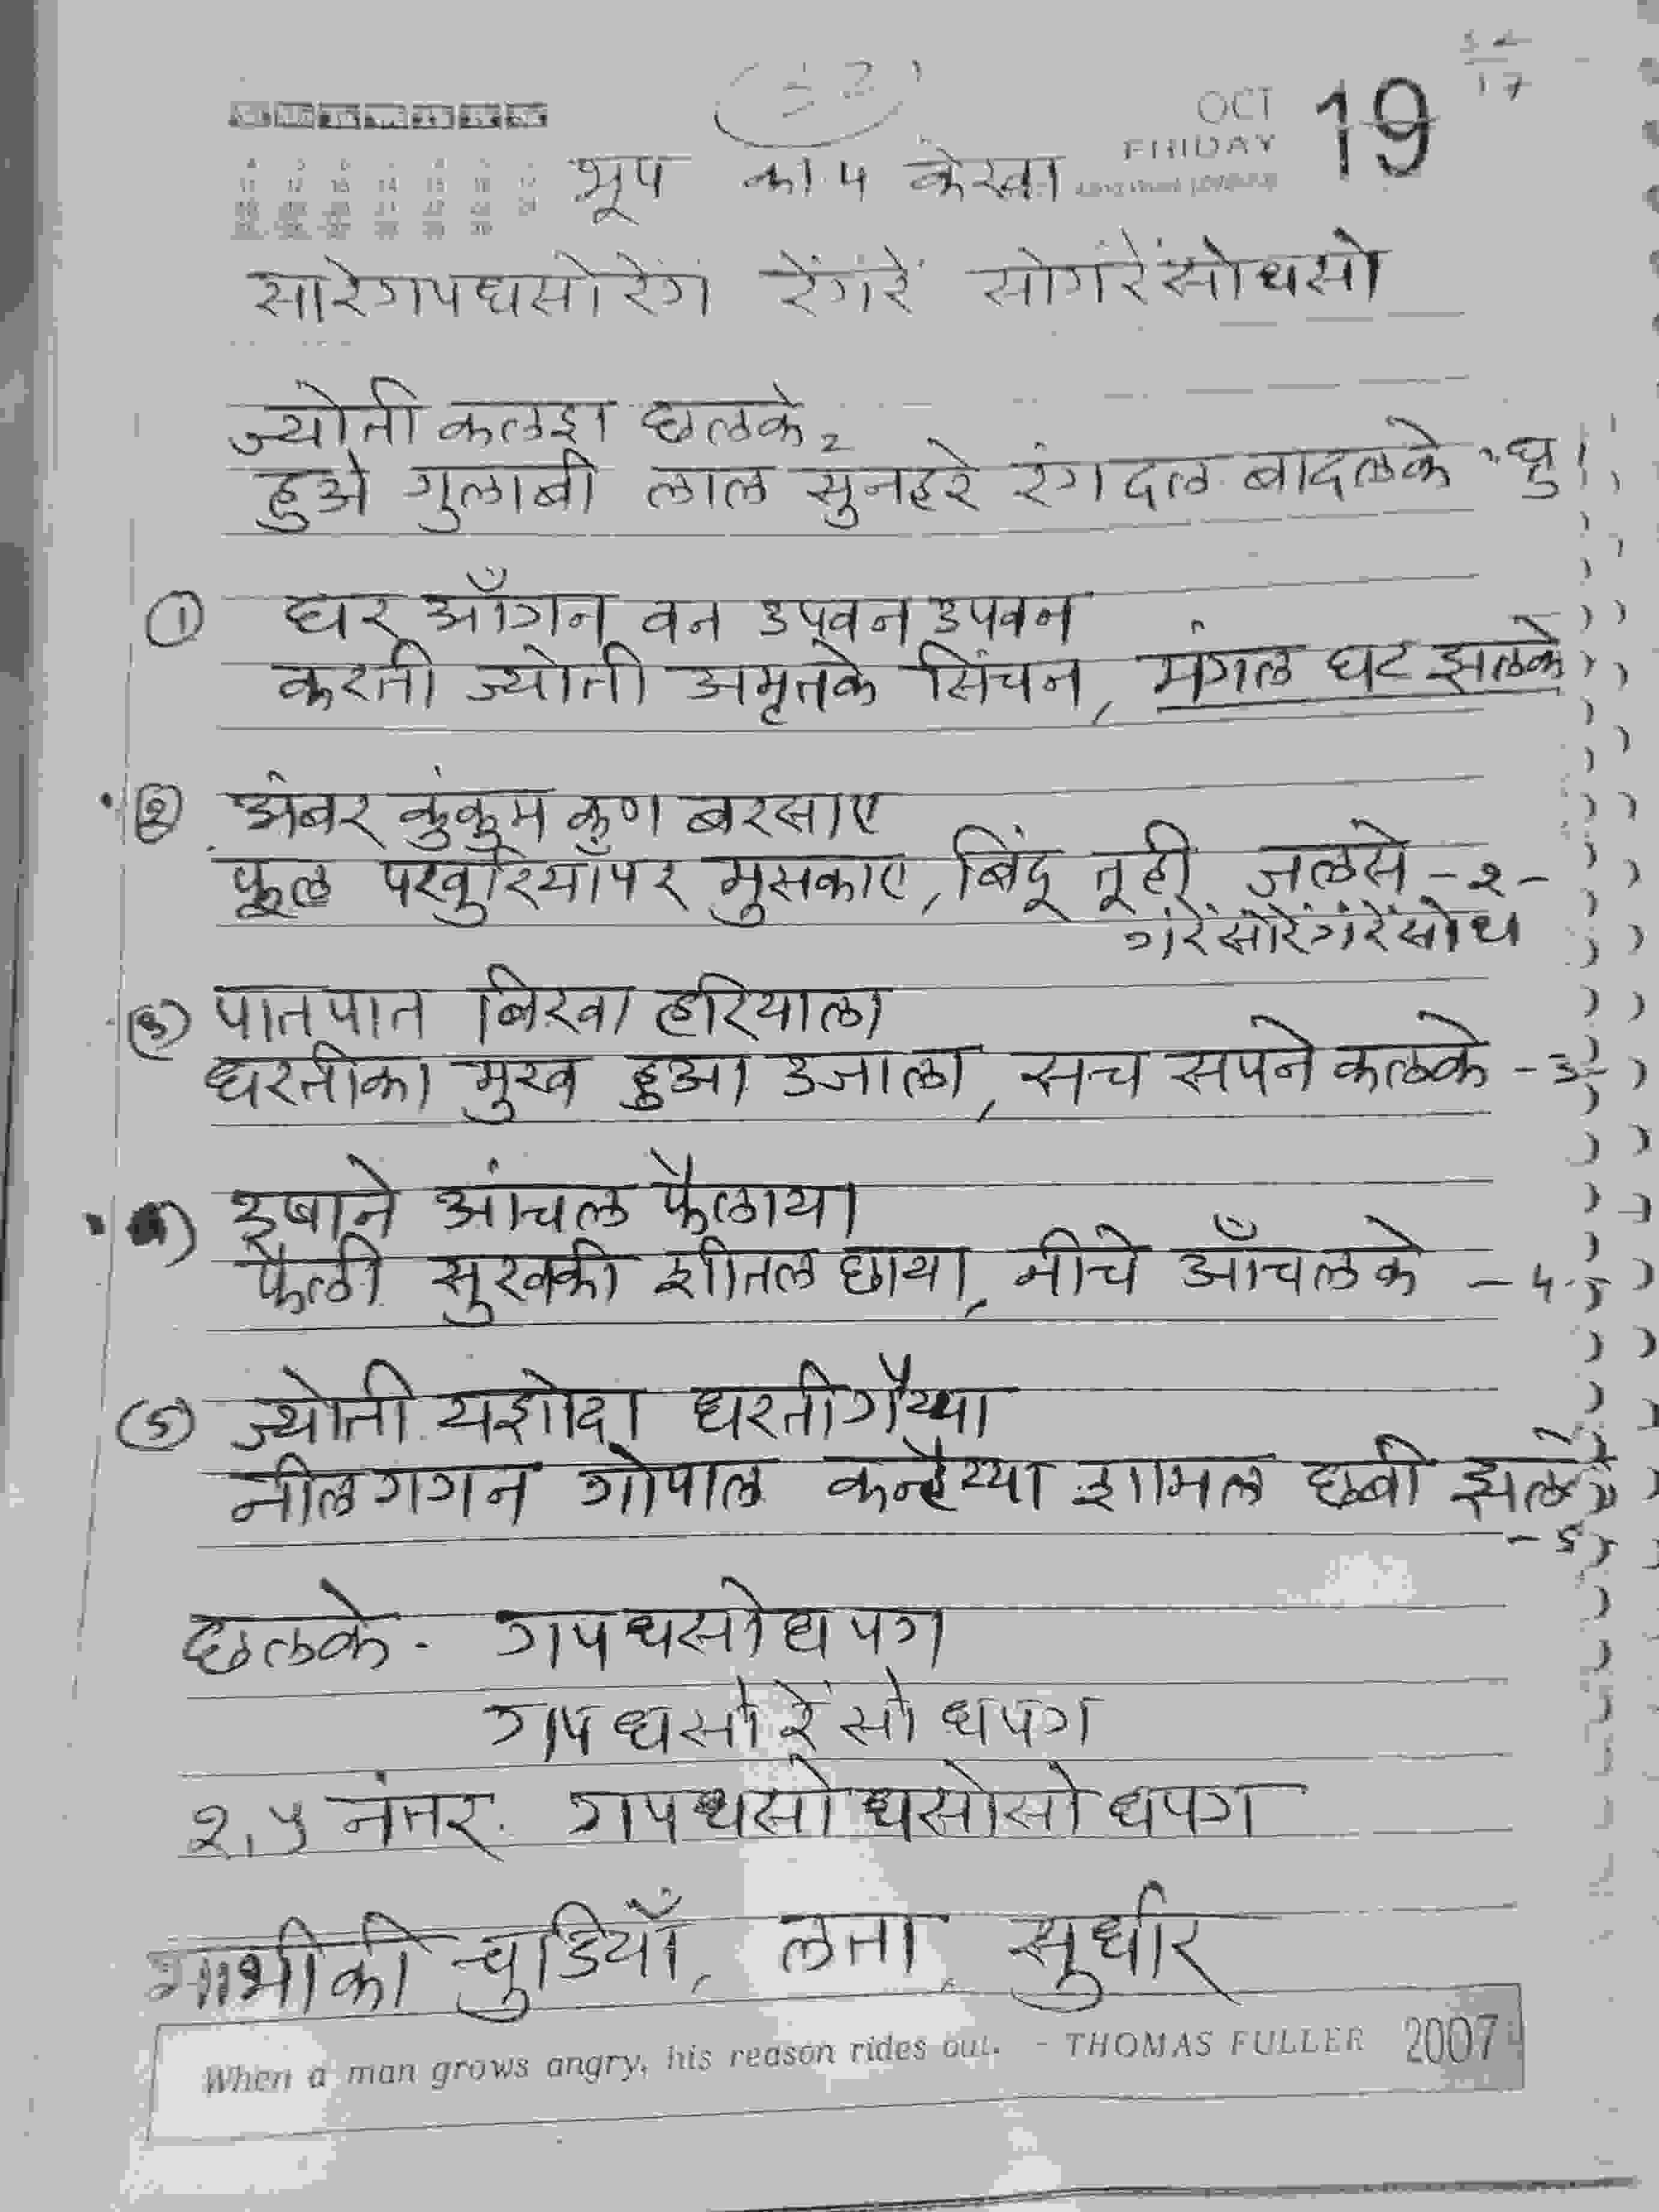 OCT
19
FRIDAY
भूप का प केरवा
सारेगपधसोरेंगं रेंगंरें सोगंरेंसोधसो
ज्योती कलश छलके २
हुअे गुलाबी लाल सुनहरे रंग दल बादलके ॥धृ॥
① घर आँगन वन उपवन उपवन
करती ज्योती अमृतके सिंचन, मंगल घट झलके
② अंबर कुंकुम कण बरसाए
फूल पखुरियाँपर मुसकाए, बिंदू तूही जलसे -२-
गंरेंसोरेंगंरेंसोध
③ पातपात बिरवा हरियाला
धरतीका मुख हुआ उजाला, सच सपने कलके -३-
उषाने आंचल फैलाया
फैली सुखकी शीतल छाया, नीचे आँचलके -४-
⑤ ज्योती यशोदा धरतीगैय्या
नीलगगन गोपाल कन्हैय्या शामल छबी झलके
-५
छलके - गपधसोधपग
गपधसोरेंसोधपग
२,५ नंतर. गपधसोधसोसोधपग
भाभीकी चुडियाँ, लता, सुधीर
When a man grows angry, his reason rides out. - THOMAS FULLER 2007